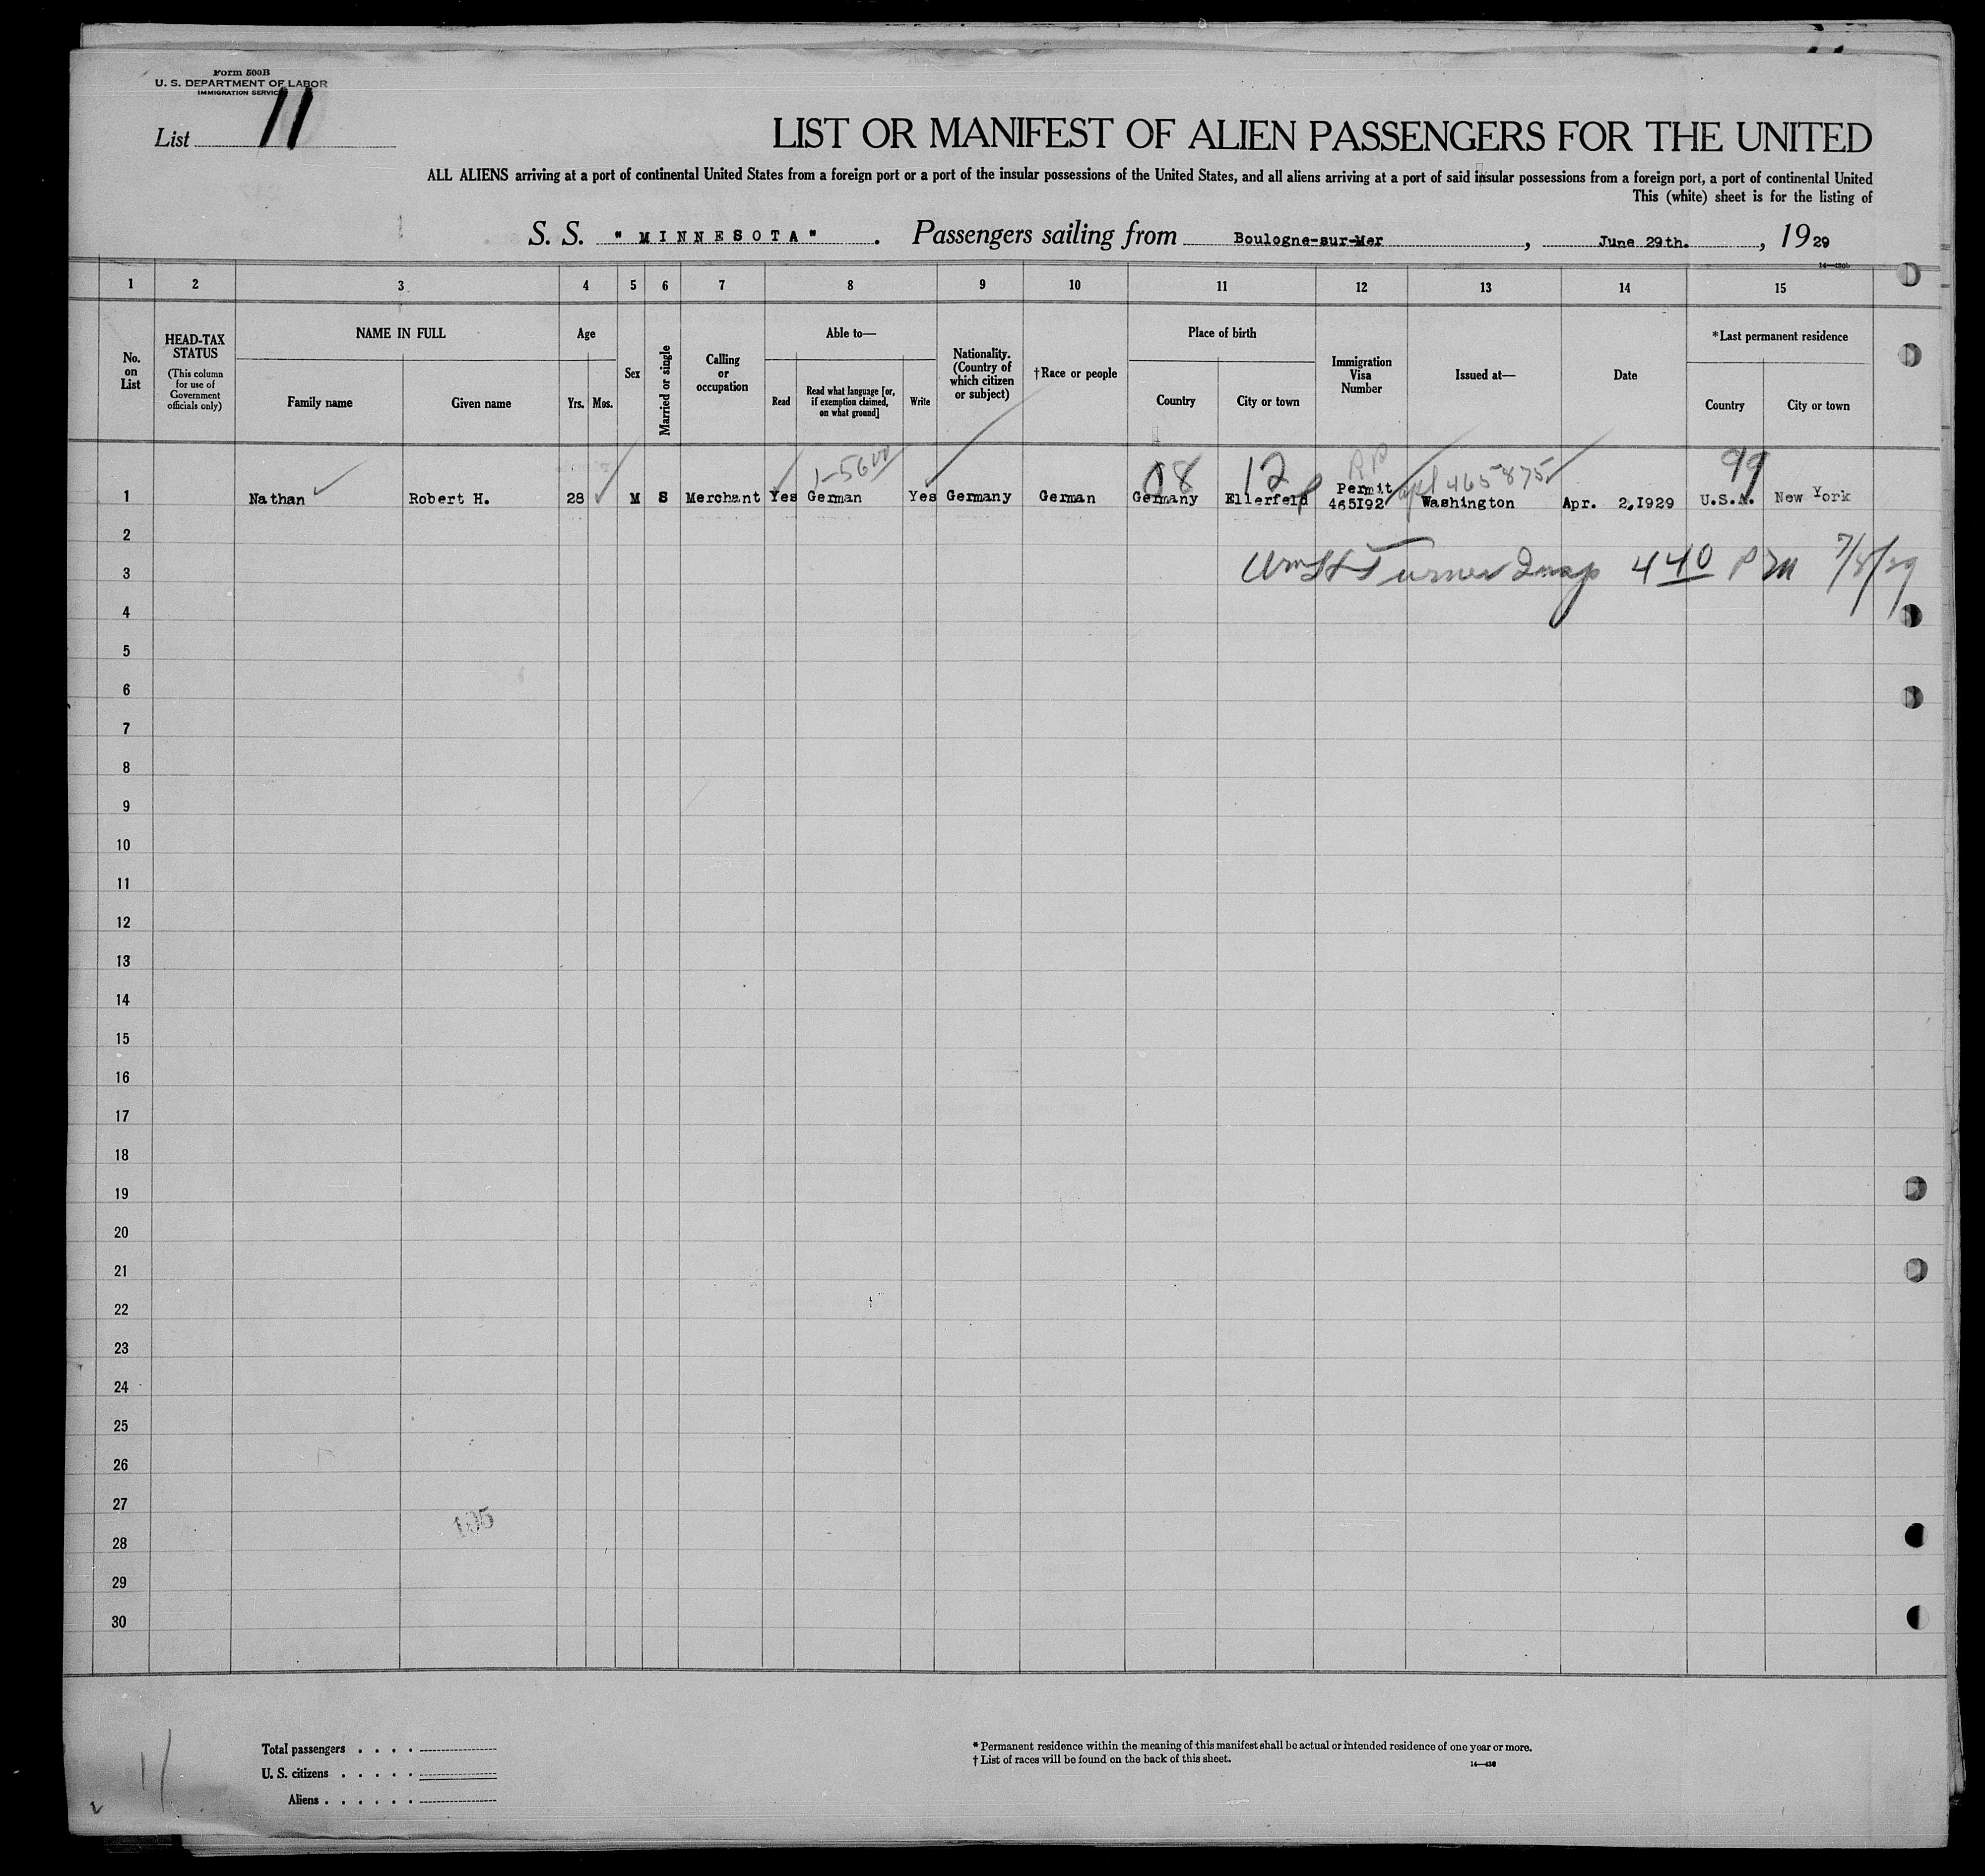 Form 500B
U. S. DEPARTMENT OF LABOR
IMMIGRATION SERVICE
List 11
LIST OR MANIFEST OF ALIEN PASSENGERS FOR THE UNITED
ALL ALIENS arriving at a port of continental United States from a foreign port or a port of the insular possessions of the United States, and all aliens arriving at a port of said insular possessions from a foreign port, a port of continental United
This (white) sheet is for the listing of
S. S. "MINNESOTA". Passengers sailing from Boulogne-sur-Mer, June 29th., 1929
14—430b
1 2 3 4 5 6 7 8 9 10 11 12 13 14 15
No. on List
HEAD-TAX STATUS
(This column for use of Government officials only)
NAME IN FULL
Family name
Given name
Age
Yrs.
Mos.
Sex
Married or single
Calling or occupation
Able to—
Read
Read what language [or, if exemption claimed, on what ground]
Write
Nationality. (Country of which citizen or subject)
†Race or people
Place of birth
Country
City or town
Immigration Visa Number
Issued at—
Date
*Last permanent residence
Country
City or town
08 12 465875 99
1 Nathan Robert H. 28 M S Merchant Yes German Yes Germany German Germany Ellerfeld Permit 465192 Washington Apr. 2,1929 U.S.A. New York
2
Turner Insp 4 40 PM 7/8/29
3
4
5
6
7
8
9
10
11
12
13
14
15
16
17
18
19
20
21
22
23
24
25
26
27
28
29
30
Total passengers . . . .
U. S. citizens . . . . .
Aliens . . . . . .
* Permanent residence within the meaning of this manifest shall be actual or intended residence of one year or more.
† List of races will be found on the back of this sheet.
14—430